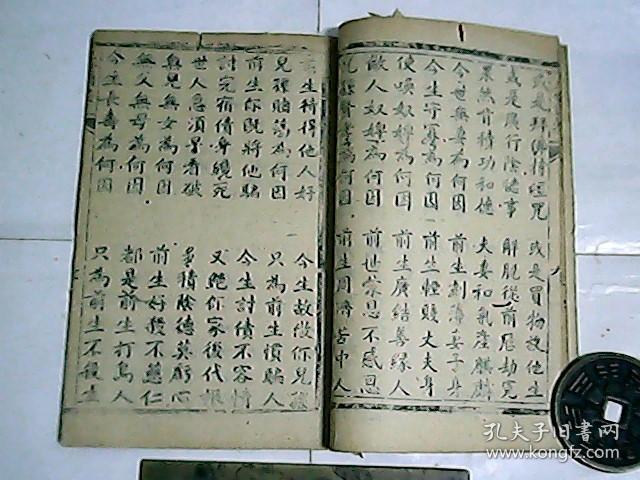 或是拜佛持經咒 或是買物放他生
或是廣行陰隲事 解脫從前怨劫冤
果然有積功和德 夫妻和氣產麒麟
今世無妻為何因 前生刻薄妻子身
今生守寡為何因 前生輕賤丈夫身
使喚奴婢為何因 前生廣結善緣人
做人奴婢為何因 前世家恩不感恩
賢孝為何因 前生周濟苦中人
前生待得他人好 今生故做你兒孫
兒孫賭蕩為何因 只為前生慣騙人
前生你既將他騙 今生討債不容情
討完宿債身纔死 又絕你家後代根
世人急須早看破 多積陰德莫虧心
無兒無女為何因 前生好殺不慈仁
無父無母為何因 都是前生打鳥人
今生長壽為何因 只為前生不殺生
孔夫子旧书网
www.kongfz.com